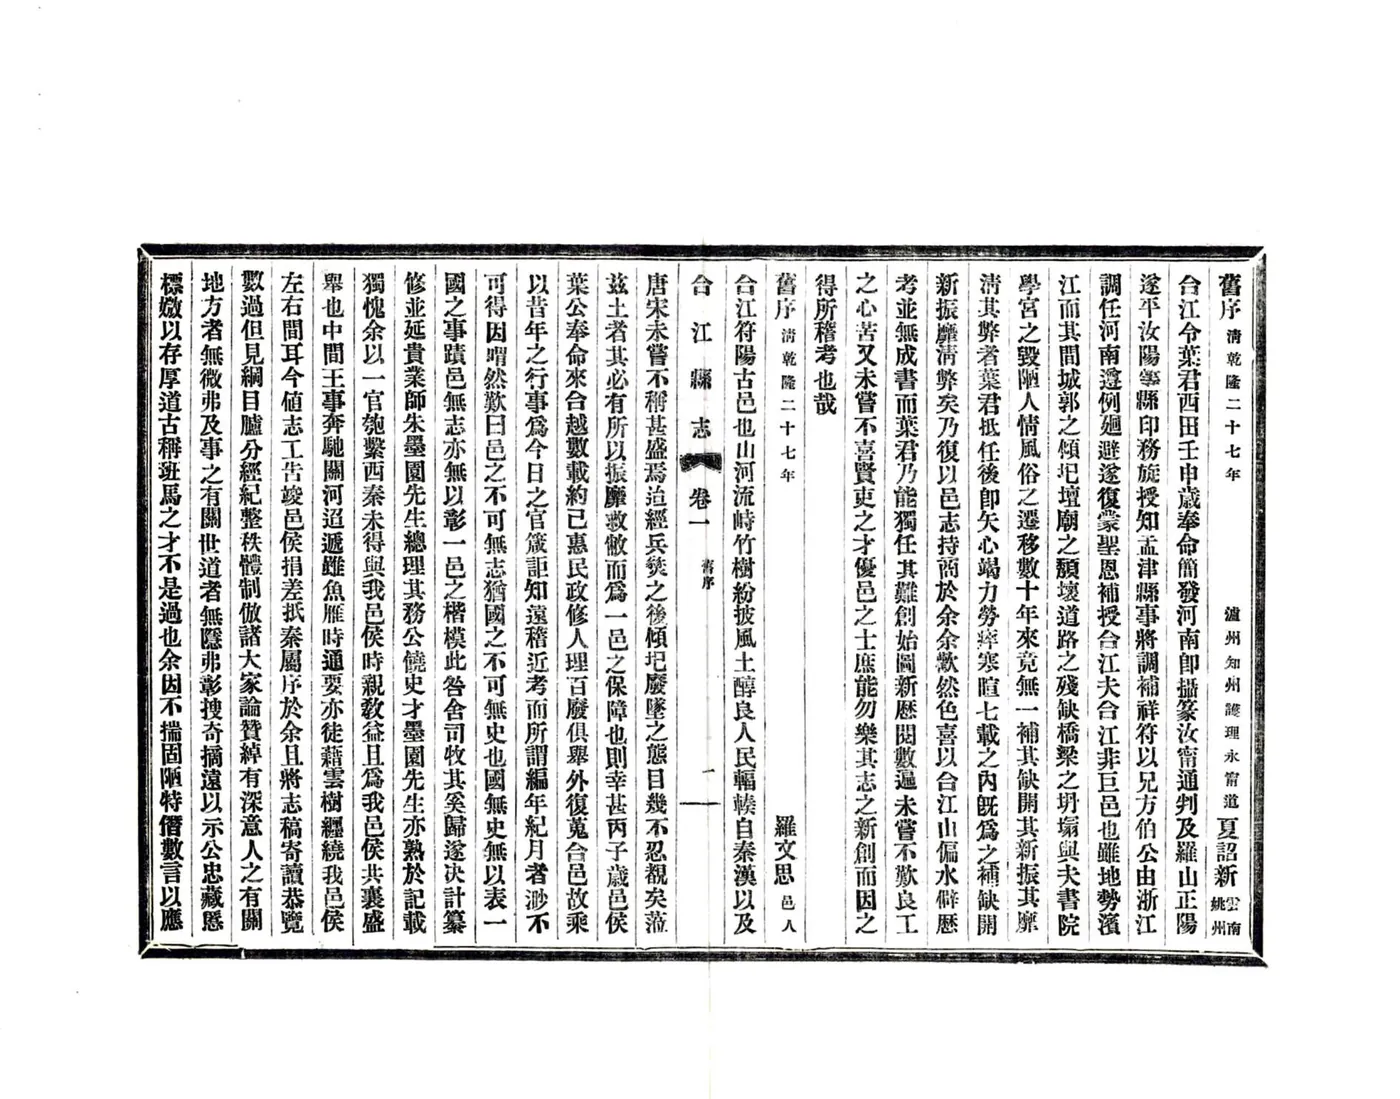 舊序 清乾隆二十七年 瀘州知州護理永甯道 夏詔新 雲南姚州
合江令葉君西田壬申歲奉命簡發河南卽攝篆汝甯通判及羅山正陽
遂平汝陽等縣印務旋授知孟津縣事將調補祥符以兄方伯公由浙江
調任河南遵例廻避遂復蒙聖恩補授合江夫合江非巨邑也雖地勢濱
江而其間城郭之傾圮壇廟之頽壞道路之殘缺橋梁之坍塌與夫書院
學宮之毀陋人情風俗之遷移數十年來竟無一補其缺開其新振其靡
淸其弊者葉君抵任後卽矢心竭力勞瘁寒暄七載之內旣爲之補缺開
新振靡淸弊矣乃復以邑志持商於余余歎然色喜以合江山偏水僻歷
考並無成書而葉君乃能獨任其難創始圖新歷閱數遍未嘗不歎良工
之心苦又未嘗不喜賢吏之才優邑之士庶能勿樂其志之新創而因之
得所稽考也哉
舊序 淸乾隆二十七年 羅文思 邑人
合江符陽古邑也山河流峙竹樹紛披風土醇良人民輻輳自秦漢以及
合江縣志 卷一 舊序 一
唐宋未嘗不稱甚盛焉迨經兵燹之後傾圮廢墜之態目幾不忍覩矣蒞
茲土者其必有所以振靡救敝而爲一邑之保障也則幸甚丙子歲邑侯
葉公奉命來合越數載約己惠民政修人理百廢俱舉外復蒐合邑故乘
以昔年之行事爲今日之官箴詎知遠稽近考而所謂編年紀月者渺不
可得因喟然歎曰邑之不可無志猶國之不可無史也國無史無以表一
國之事蹟邑無志亦無以彰一邑之楷模此咎舍司牧其奚歸遂決計纂
修並延貴業師朱墨園先生總理其務公饒史才墨園先生亦熟於記載
獨愧余以一官匏繫西秦未得與我邑侯時親敎益且爲我邑侯共襄盛
舉也中間王事奔馳關河迢遞雖魚雁時通要亦徒藉雲樹纏繞我邑侯
左右間耳今値志工告竣邑侯捐差抵秦屬序於余且將志稿寄讀恭覽
數過但見綱目臚分經紀整秩體制倣諸大家論贊綽有深意人之有關
地方者無微弗及事之有關世道者無隱弗彰搜奇摘遠以示公忠藏慝
標媺以存厚道古稱班馬之才不是過也余因不揣固陋特僭數言以應